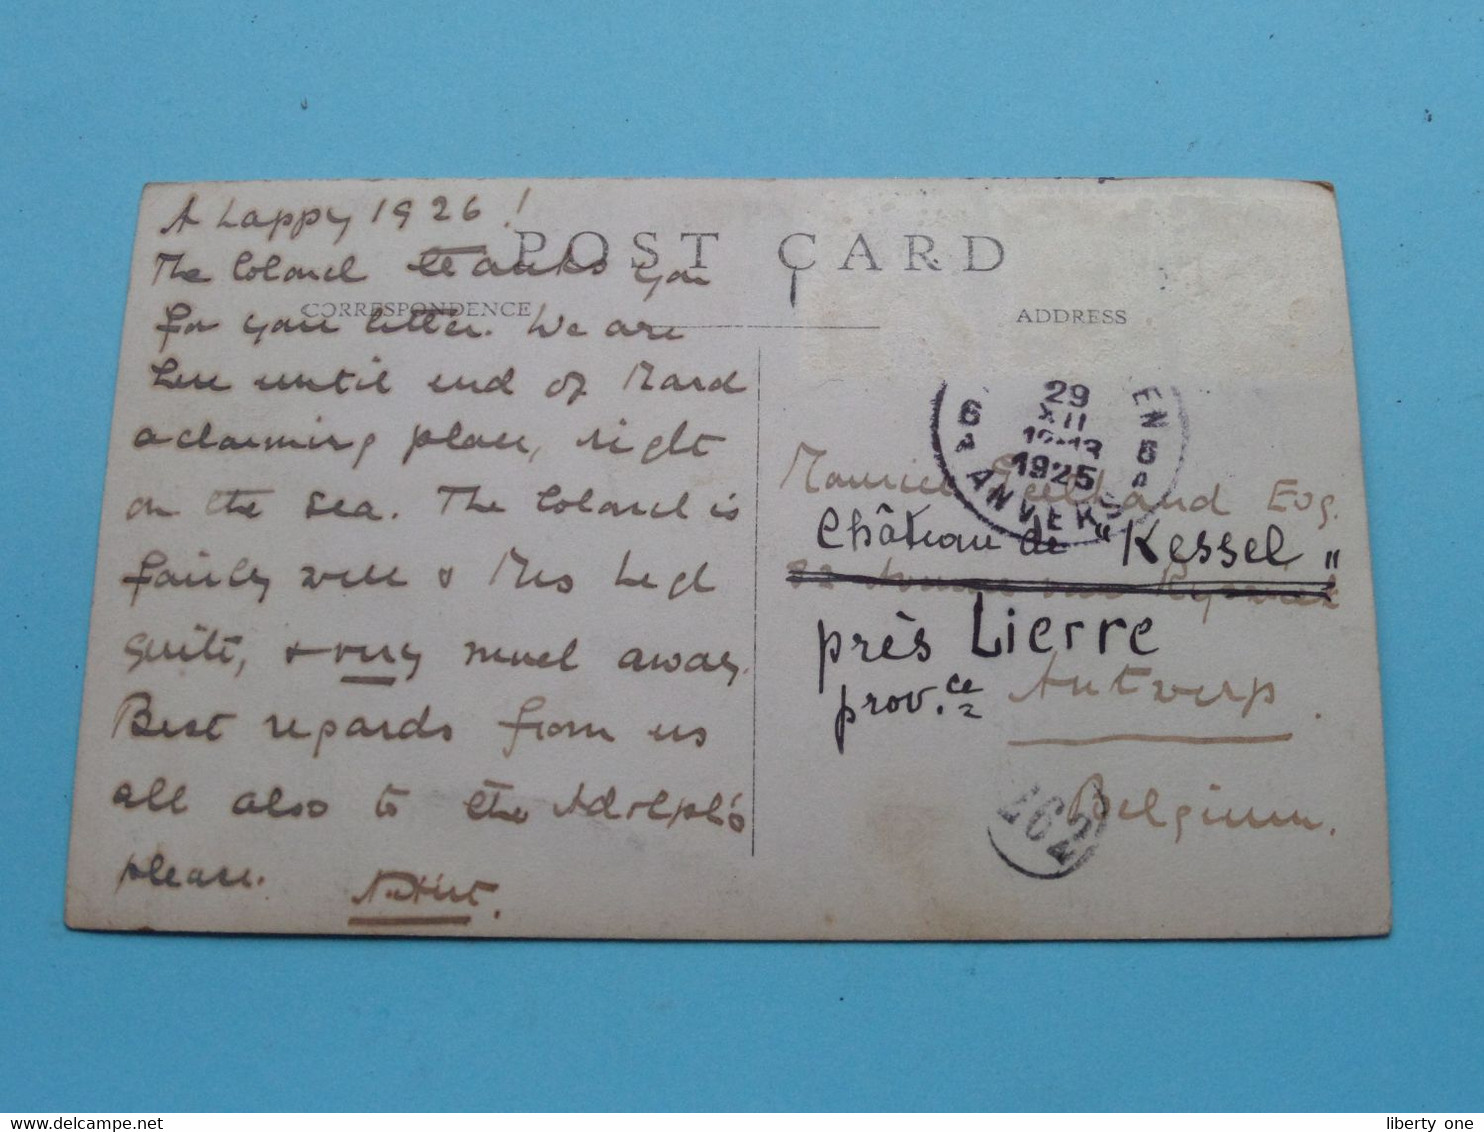 A happy 1926!
The Colonel thanks you
for your letter. We are
here until end of March
a charming place, right
on the sea. The Colonel is
fairly well & Mrs
quite, & very much away.
Best regards from us
all also to the Adolph's
please.
POST CARD
CORRESPONDENCE
ADDRESS
29
XII
1925
6
6
ANVERS
EN
Maurice Esq.
Château de "Kessel"
près Lierre
prov.ce
Antwerp.
Belgium.
262
liberty one